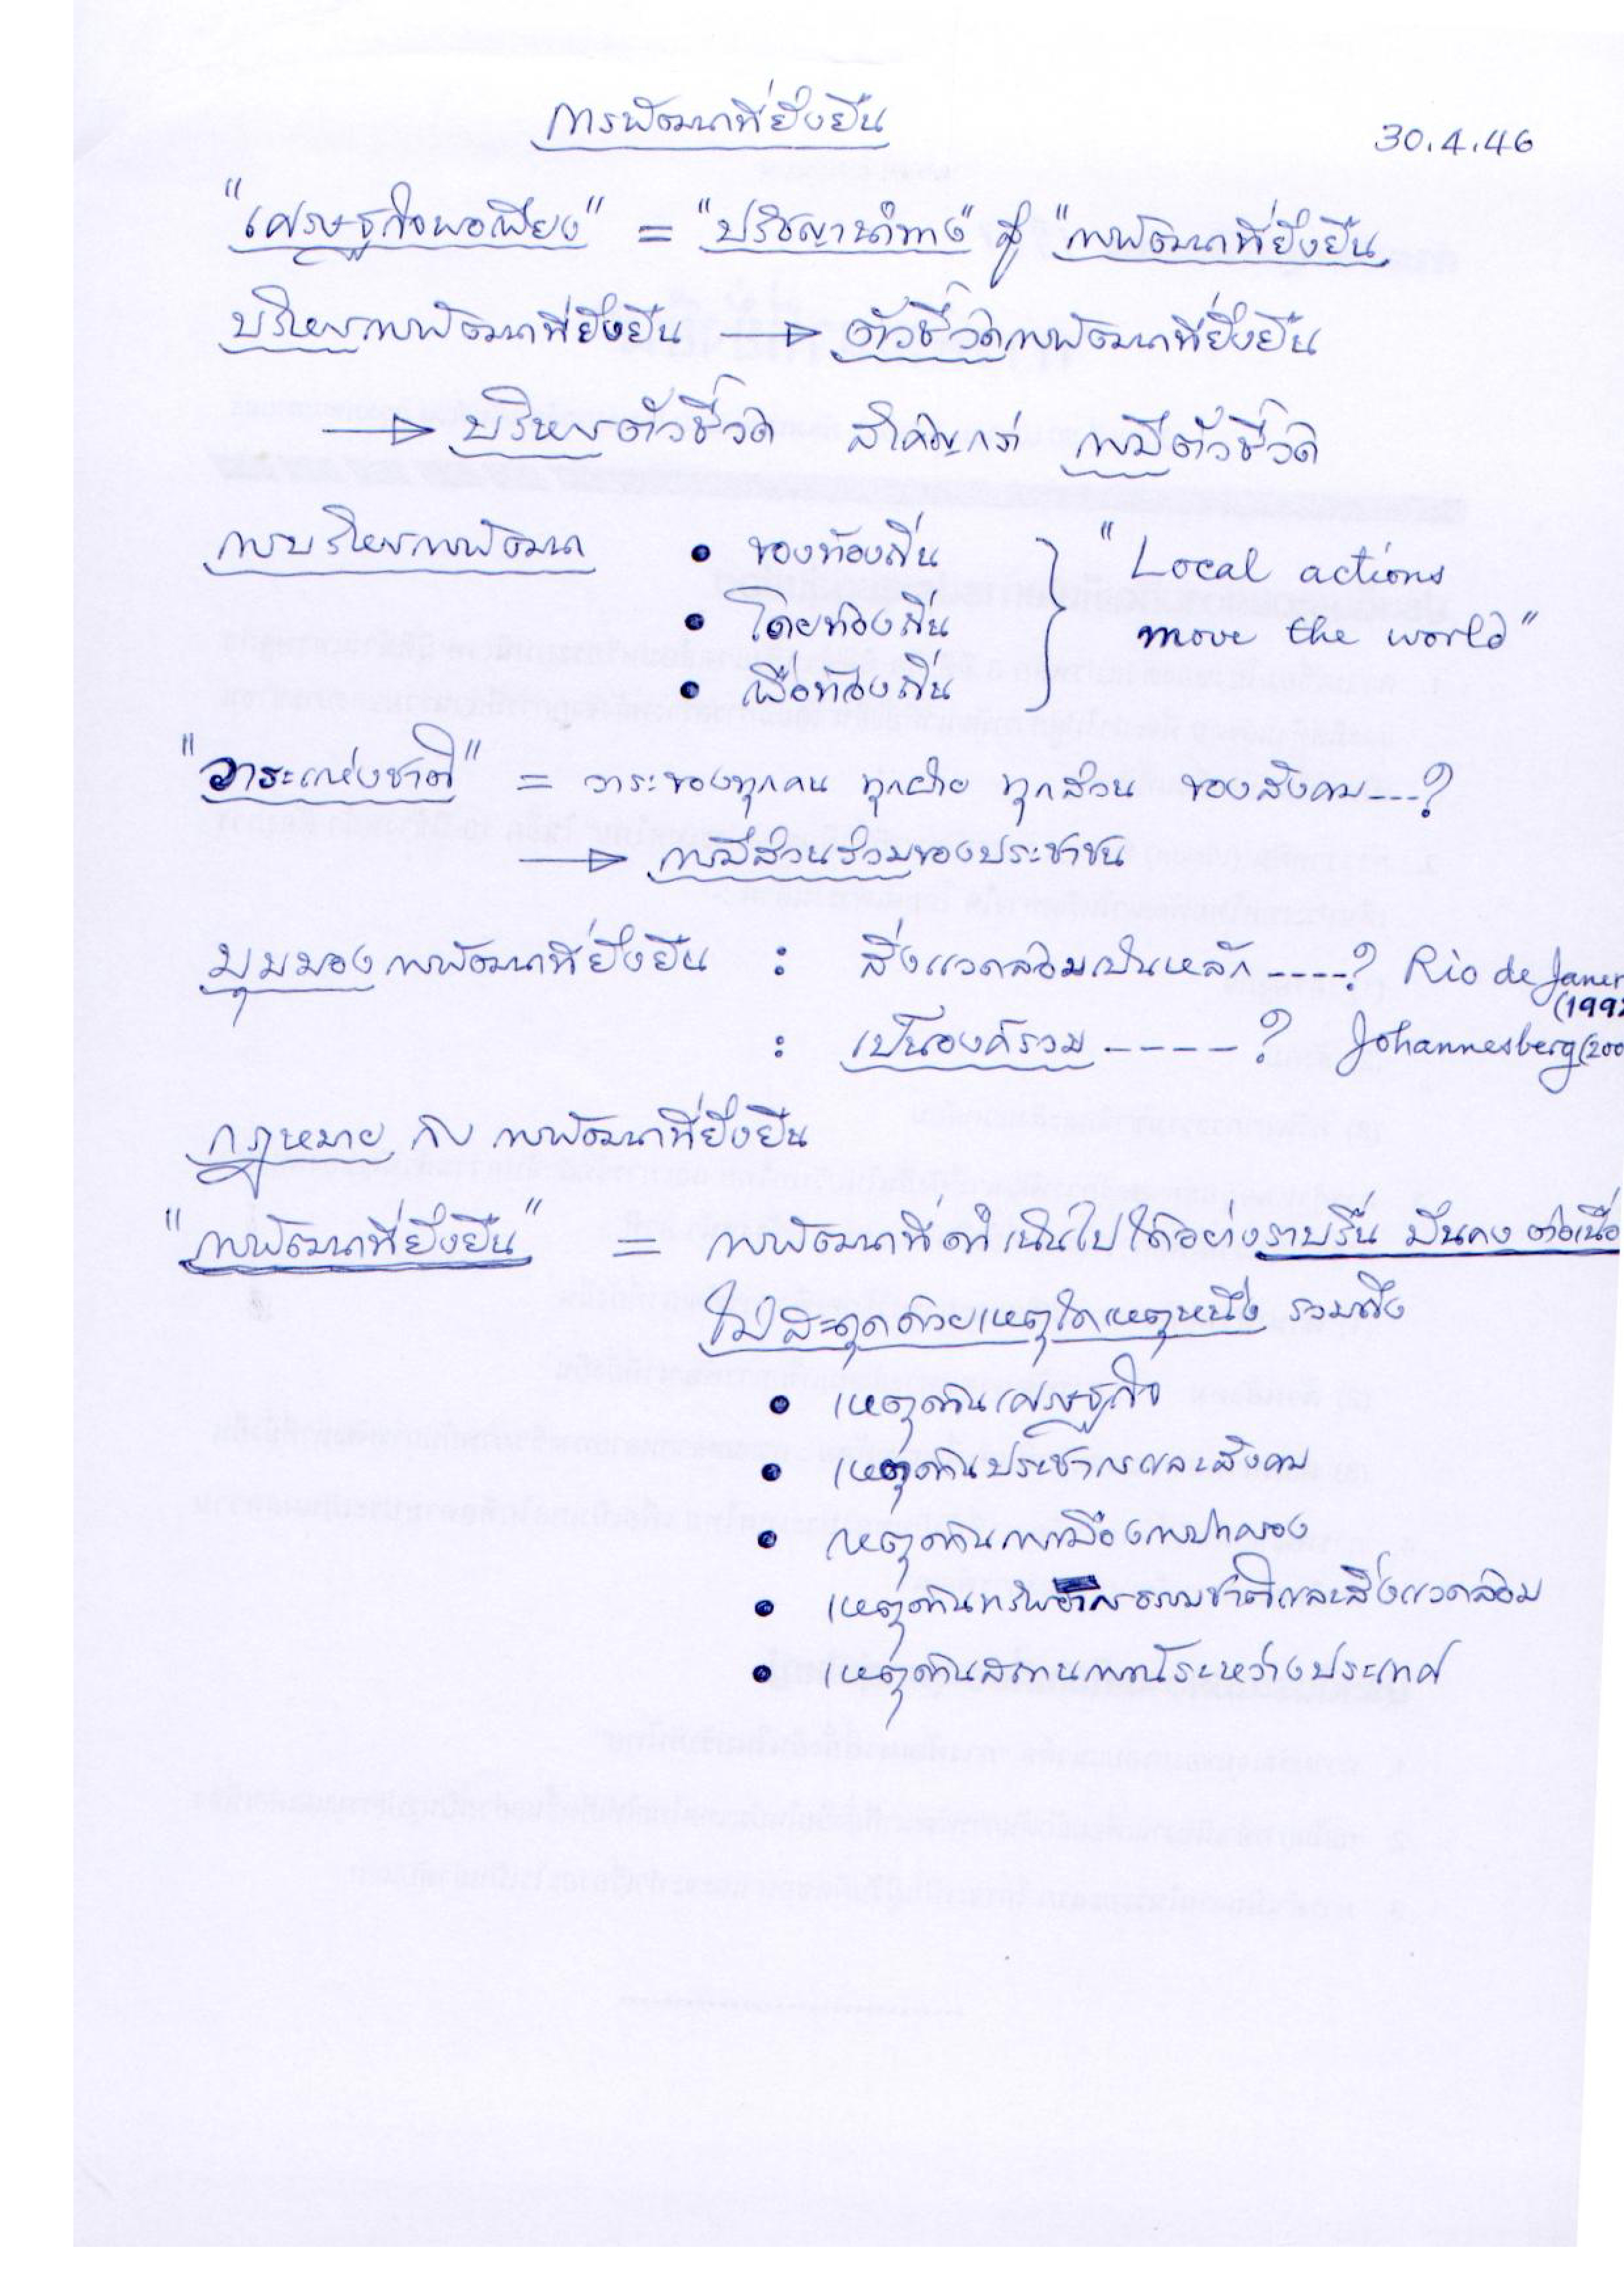 การพัฒนาที่ยั่งยืน
30.4.46
"เศรษฐกิจพอเพียง" = "ปรัชญานำทาง" สู่ "การพัฒนาที่ยั่งยืน
บริหารการพัฒนาที่ยั่งยืน → ตัวชี้วัดการพัฒนาที่ยั่งยืน
→ บริหารตัวชี้วัด สำคัญกว่า การมีตัวชี้วัด
การบริหารการพัฒนา • ของท้องถิ่น } "Local actions
• โดยท้องถิ่น move the world"
• เพื่อท้องถิ่น
"วาระแห่งชาติ" = วาระของทุกคน ทุกฝ่าย ทุกส่วน ของสังคม---?
→ การมีส่วนร่วมของประชาชน
มุมมองการพัฒนาที่ยั่งยืน : สิ่งแวดล้อมเป็นหลัก ----? Rio de Janer
(199
: เป็นองค์รวม -----? Johannesberg (200
กฎหมาย กับ การพัฒนาที่ยั่งยืน
"การพัฒนาที่ยั่งยืน" = การพัฒนาที่ดำเนินไปได้อย่างราบรื่น มั่นคง ต่อเนื่อ
ไม่สะดุดด้วยเหตุใดเหตุหนึ่ง รวมถึง
• เหตุด้านเศรษฐกิจ
• เหตุด้านประชากรและสังคม
• เหตุด้านการเมืองการปกครอง
• เหตุด้านทรัพยากรธรรมชาติและสิ่งแวดล้อม
• เหตุด้านสถานการณ์ระหว่างประเทศ